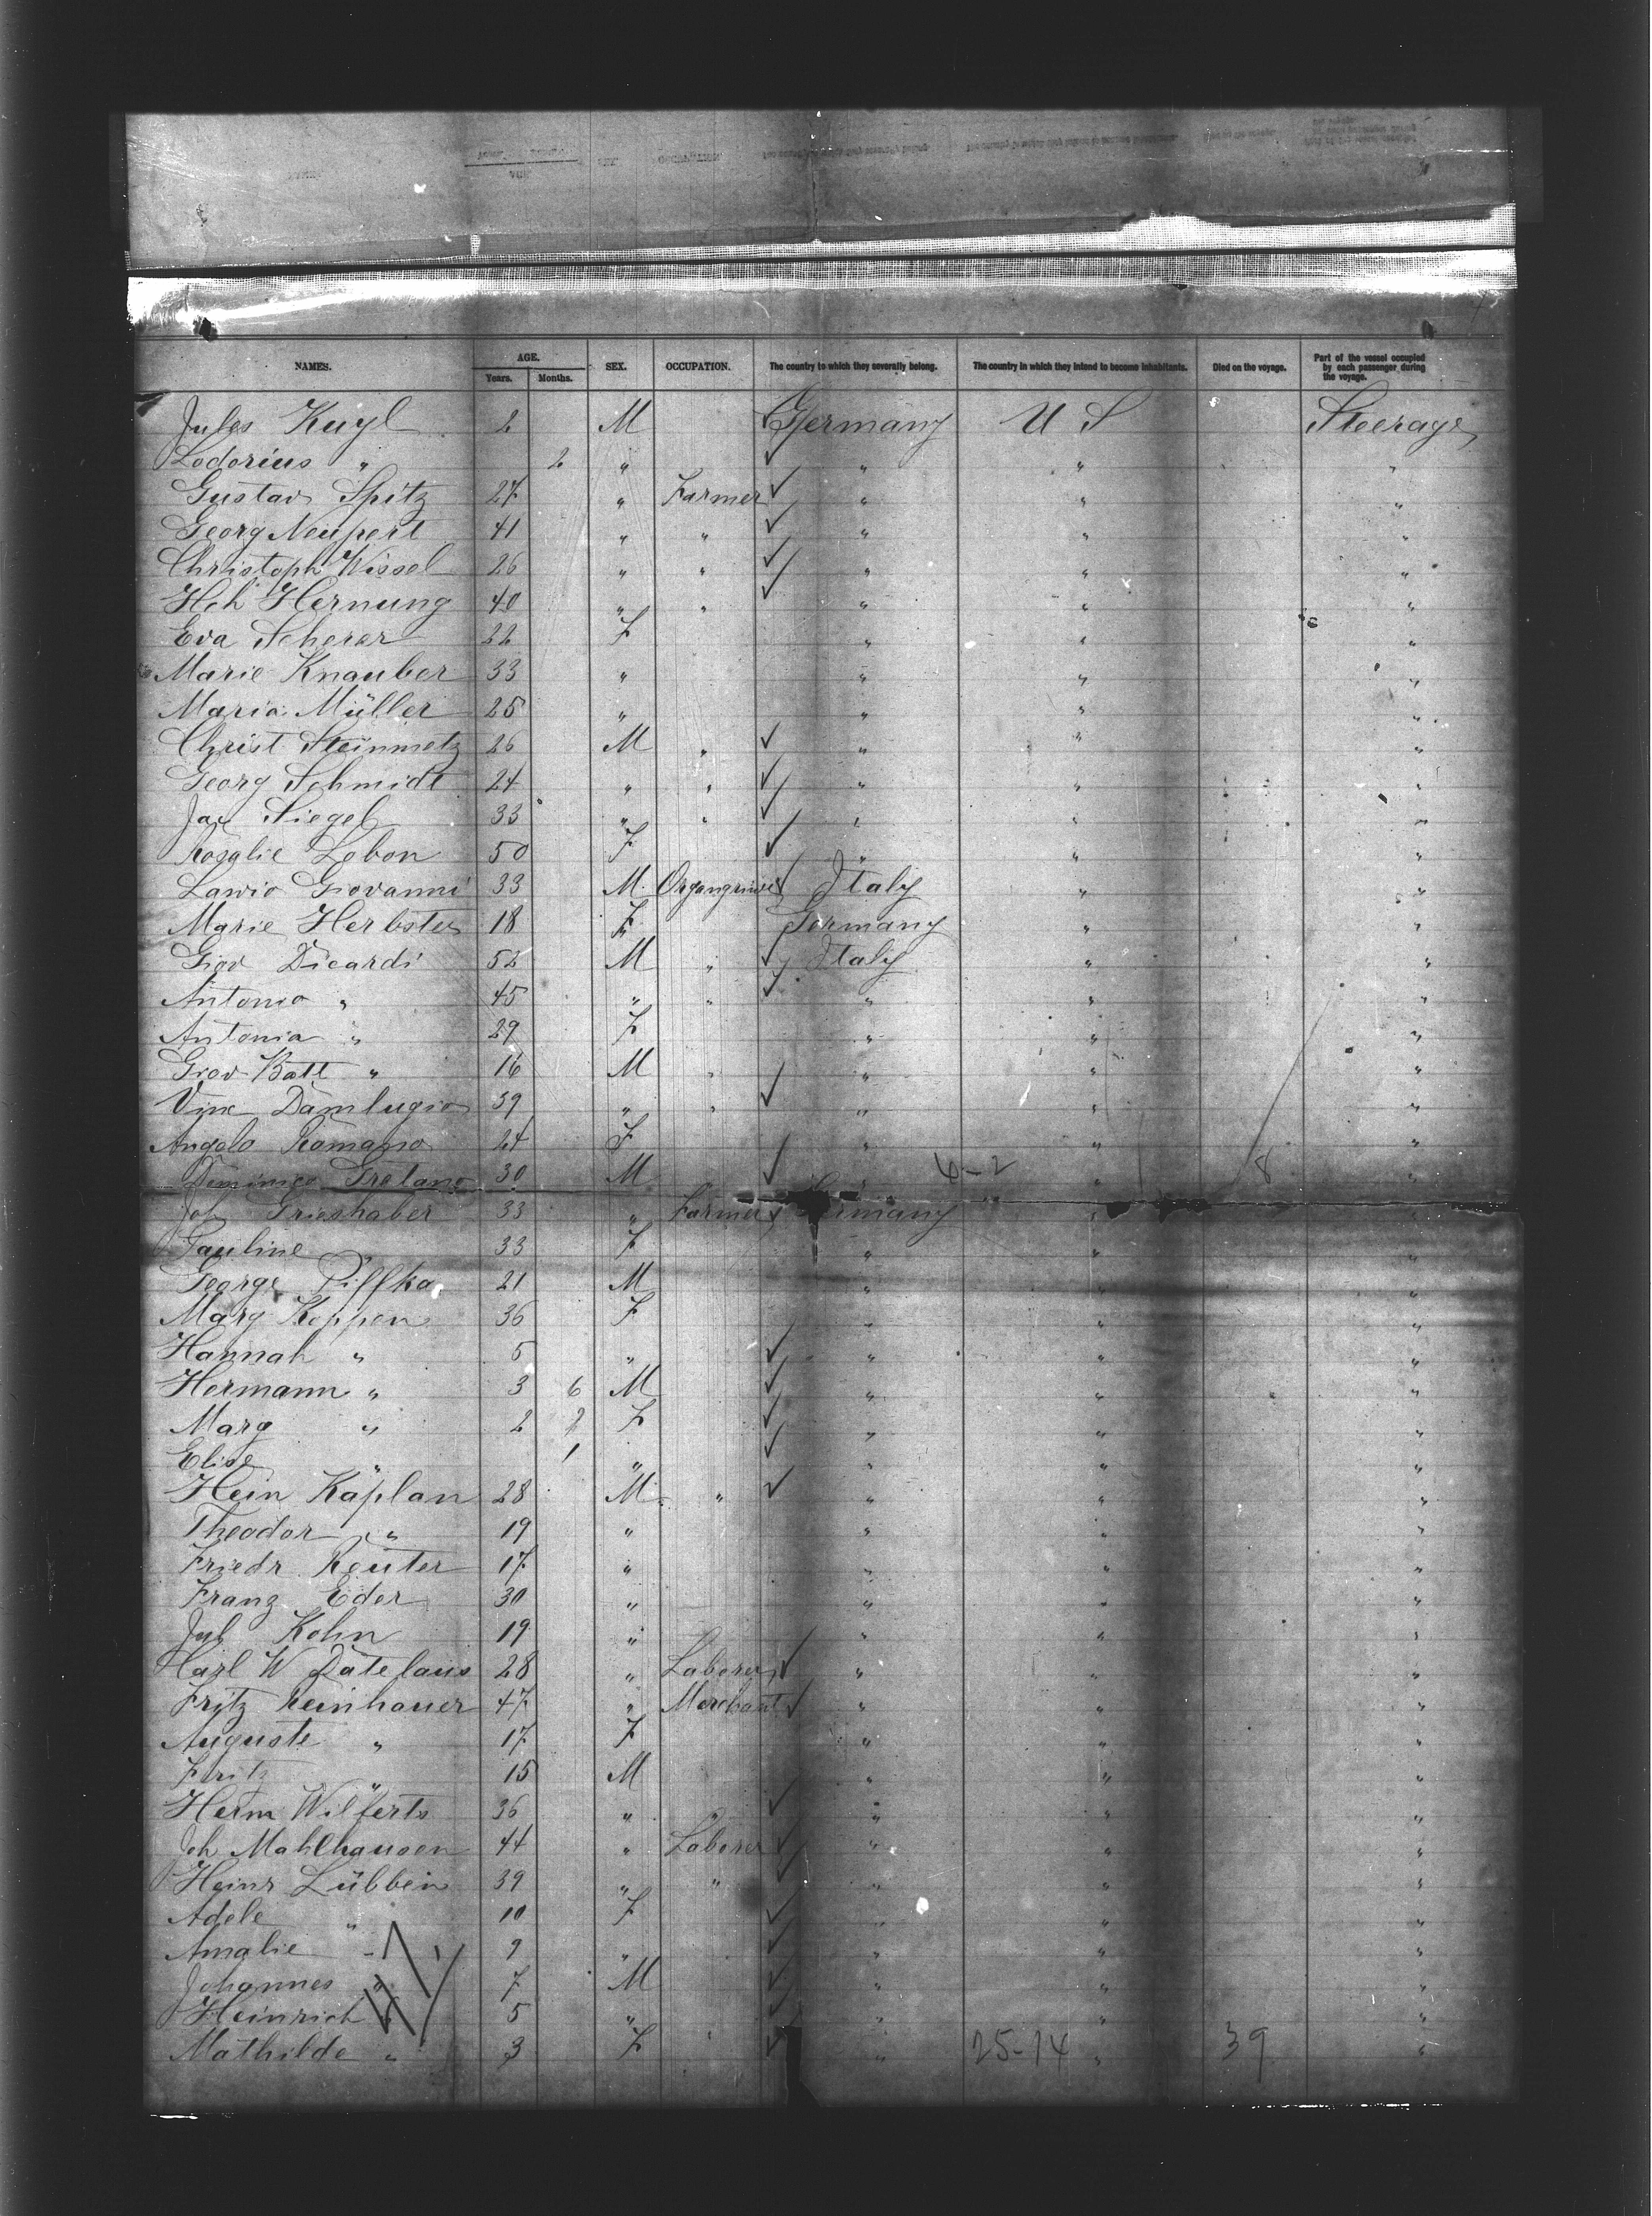 NAMES. AGE. Years. Months. SEX. OCCUPATION. The country to which they severally belong. The country in which they intend to become inhabitants. Died on the voyage. Part of the vessel occupied by each passenger during the voyage.
Jules Kugl 2 M Germany U S Steerage
Lodorius " 2 " " " "
Gustav Spitz 27 " Farmer " " "
Georg Neupert 41 " " " " "
Christoph Wissel 26 " " " " "
Hch Hernung 40 " " " " "
Eva Scherer 22 F " " "
Marie Knauber 33 " " " "
Maria Müller 25 " " " "
Christ Steinmetz 26 M " " " "
Georg Schmidt 24 " " " " "
Jac Siegel 33 " " " " "
Rosalie Lobon 50 F " " "
Lawio Giovanni 33 M Italy " "
Marie Herbster 18 F Germany " "
Giov Dicardi 52 M " Italy " "
Antonio " 45 " " " " "
Antonia " 29 F " " "
Giov Batt " 16 M " " " "
Vinc Damlugio 39 " " " " "
Angelo Romano 24 F " " "
Dominico 30 M " 6-2 " 8 "
Joh Grieshaber 33 " Farmer Germany " "
Pauline " 33 F " " "
George Piffka 21 M " " "
Marg Koppen 36 F " " "
Hannah " 5 " " " "
Hermann " 3 6 M " " "
Marg " 2 2 F " " "
Elise " 1 " " " "
Hein Kaplan 28 M " " " "
Theodor " 19 " " " "
Friedr Reuter 17 " " " "
Franz Eder 30 " " " "
Jul Kohn 19 " " " "
Karl W 28 " Laborer " " "
Fritz Reinhauer 47 " Merchant " " "
Auguste " 17 F " " "
Fritz " 15 M " " "
Herm Wilferts 36 " " " " "
Joh Mahlhausen 44 " Laborer " " "
Heinr Lübben 39 " " " " "
Adele " 10 F " " "
Amalie " 9 " " " "
Johannes " 7 M " " "
Heinrich " 5 " " " "
Mathilde " 3 F " 25-14 " 39 "